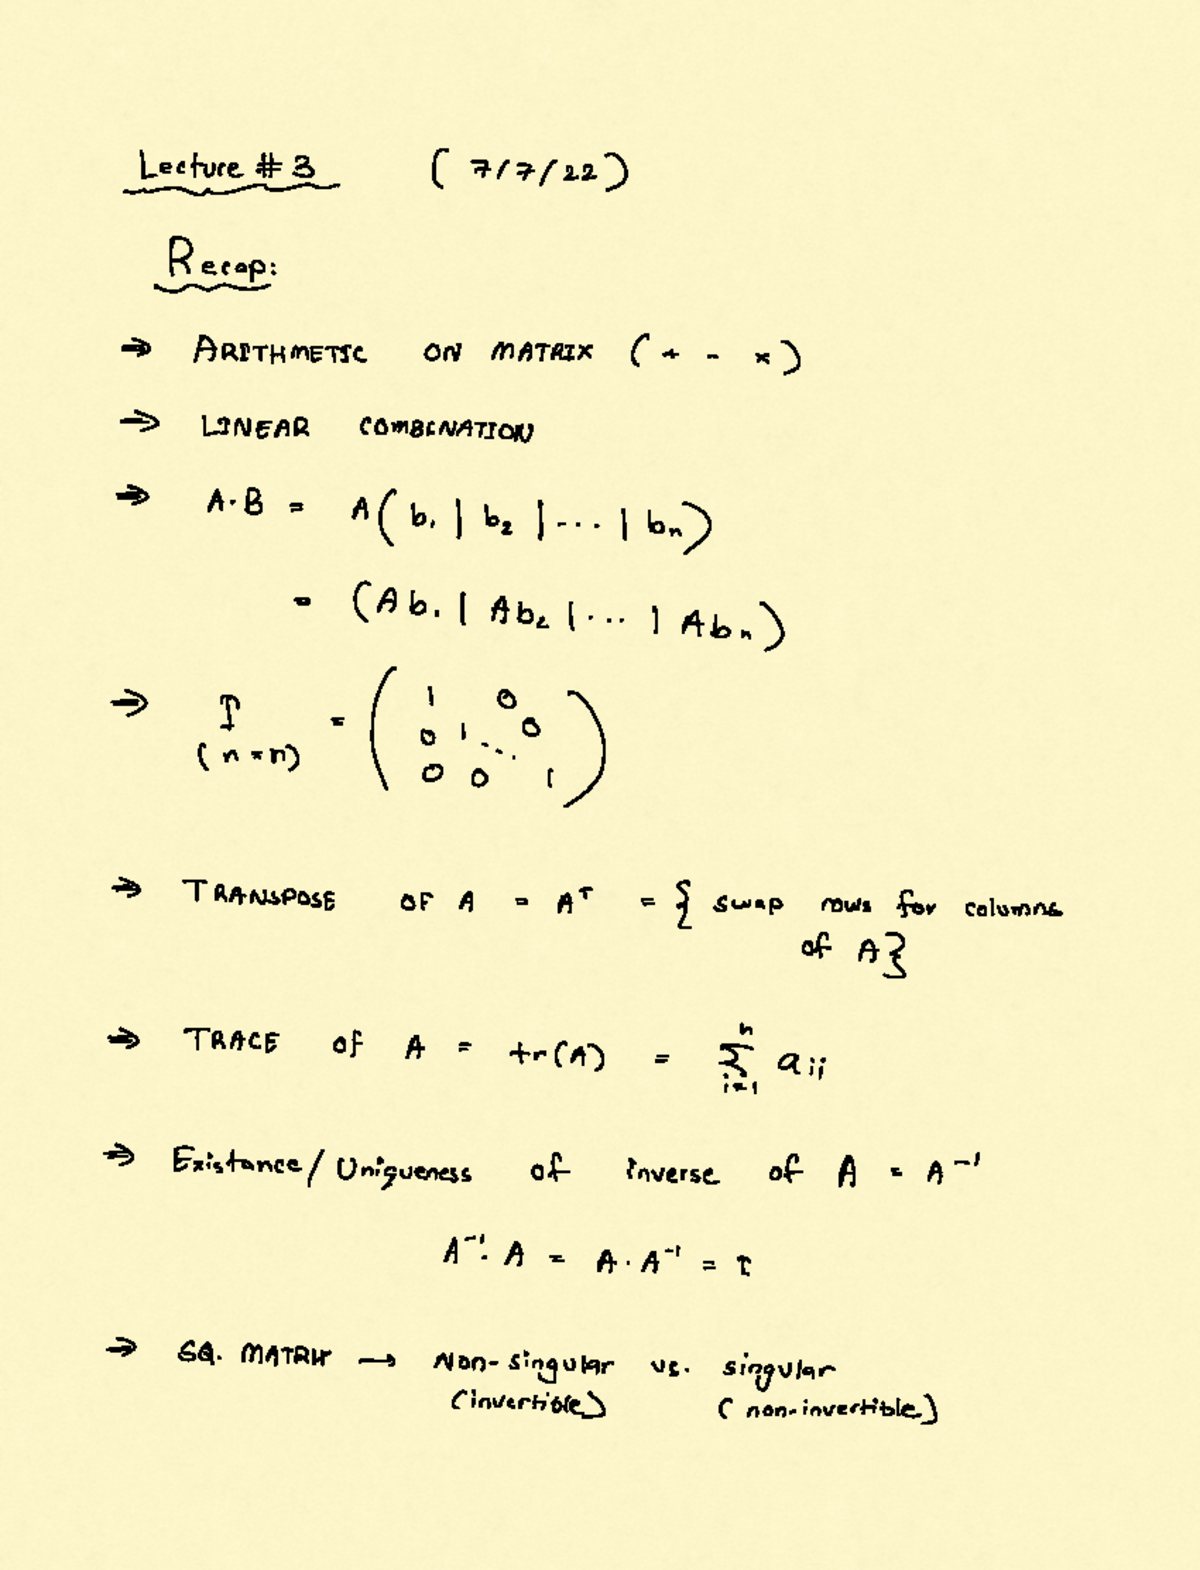 Lecture # 3 (7/7/22)
Recap:
⇒ ARITHMETIC ON MATRIX (+ - ×)
⇒ LINEAR COMBINATION
⇒ A·B = A(b₁ | b₂ | ··· | bₙ)
= (Ab₁ | Ab₂ | ··· | Abₙ)
⇒ I = ( 1 0
(n×n) 0 1 ⋱ 0
0 0 1 )
⇒ TRANSPOSE OF A = Aᵀ = { swap rows for columns
of A }
⇒ TRACE of A = tr(A) = ∑ⁿᵢ₌₁ aᵢᵢ
⇒ Existance/Uniqueness of inverse of A = A⁻¹
A⁻¹·A = A·A⁻¹ = I
⇒ SQ. MATRIX → Non-singular vs. singular
(invertible) (non-invertible)